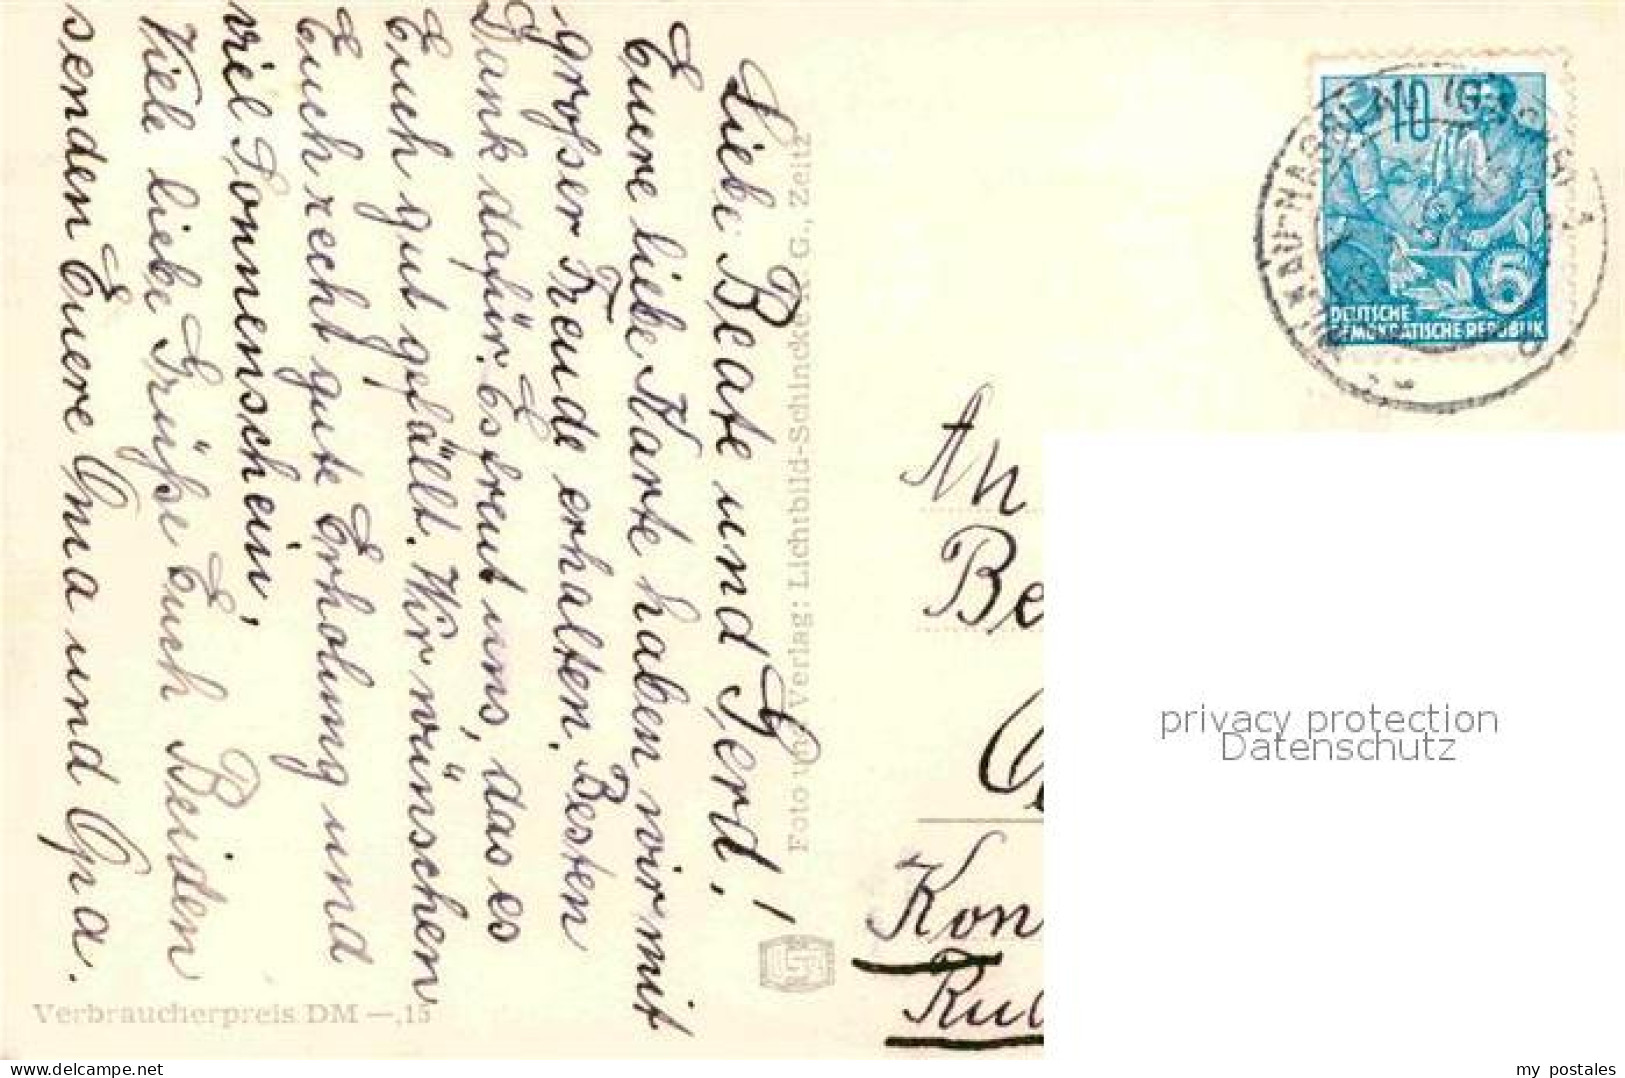 Liebe Beate und Gerd!
Euere liebe Karte haben wir mit
grosser Freude erhalten. Besten
Dank dafür. Es freut uns, das es
Euch gut gefällt. Wir wünschen
Euch recht gute Erholung und
viel Sonnenschein,
Viele liebe Grüße Euch Beiden
senden Euere Oma und Opa.
Foto und Verlag: Lichtbild-Schincke K. G., Zeitz
Verbraucherpreis DM —,15
10
5
DEUTSCHE
DEMOKRATISCHE REPUBLIK
An
Be
Kon
Rud
privacy protection
Datenschutz
www.delcampe.net
my_postales